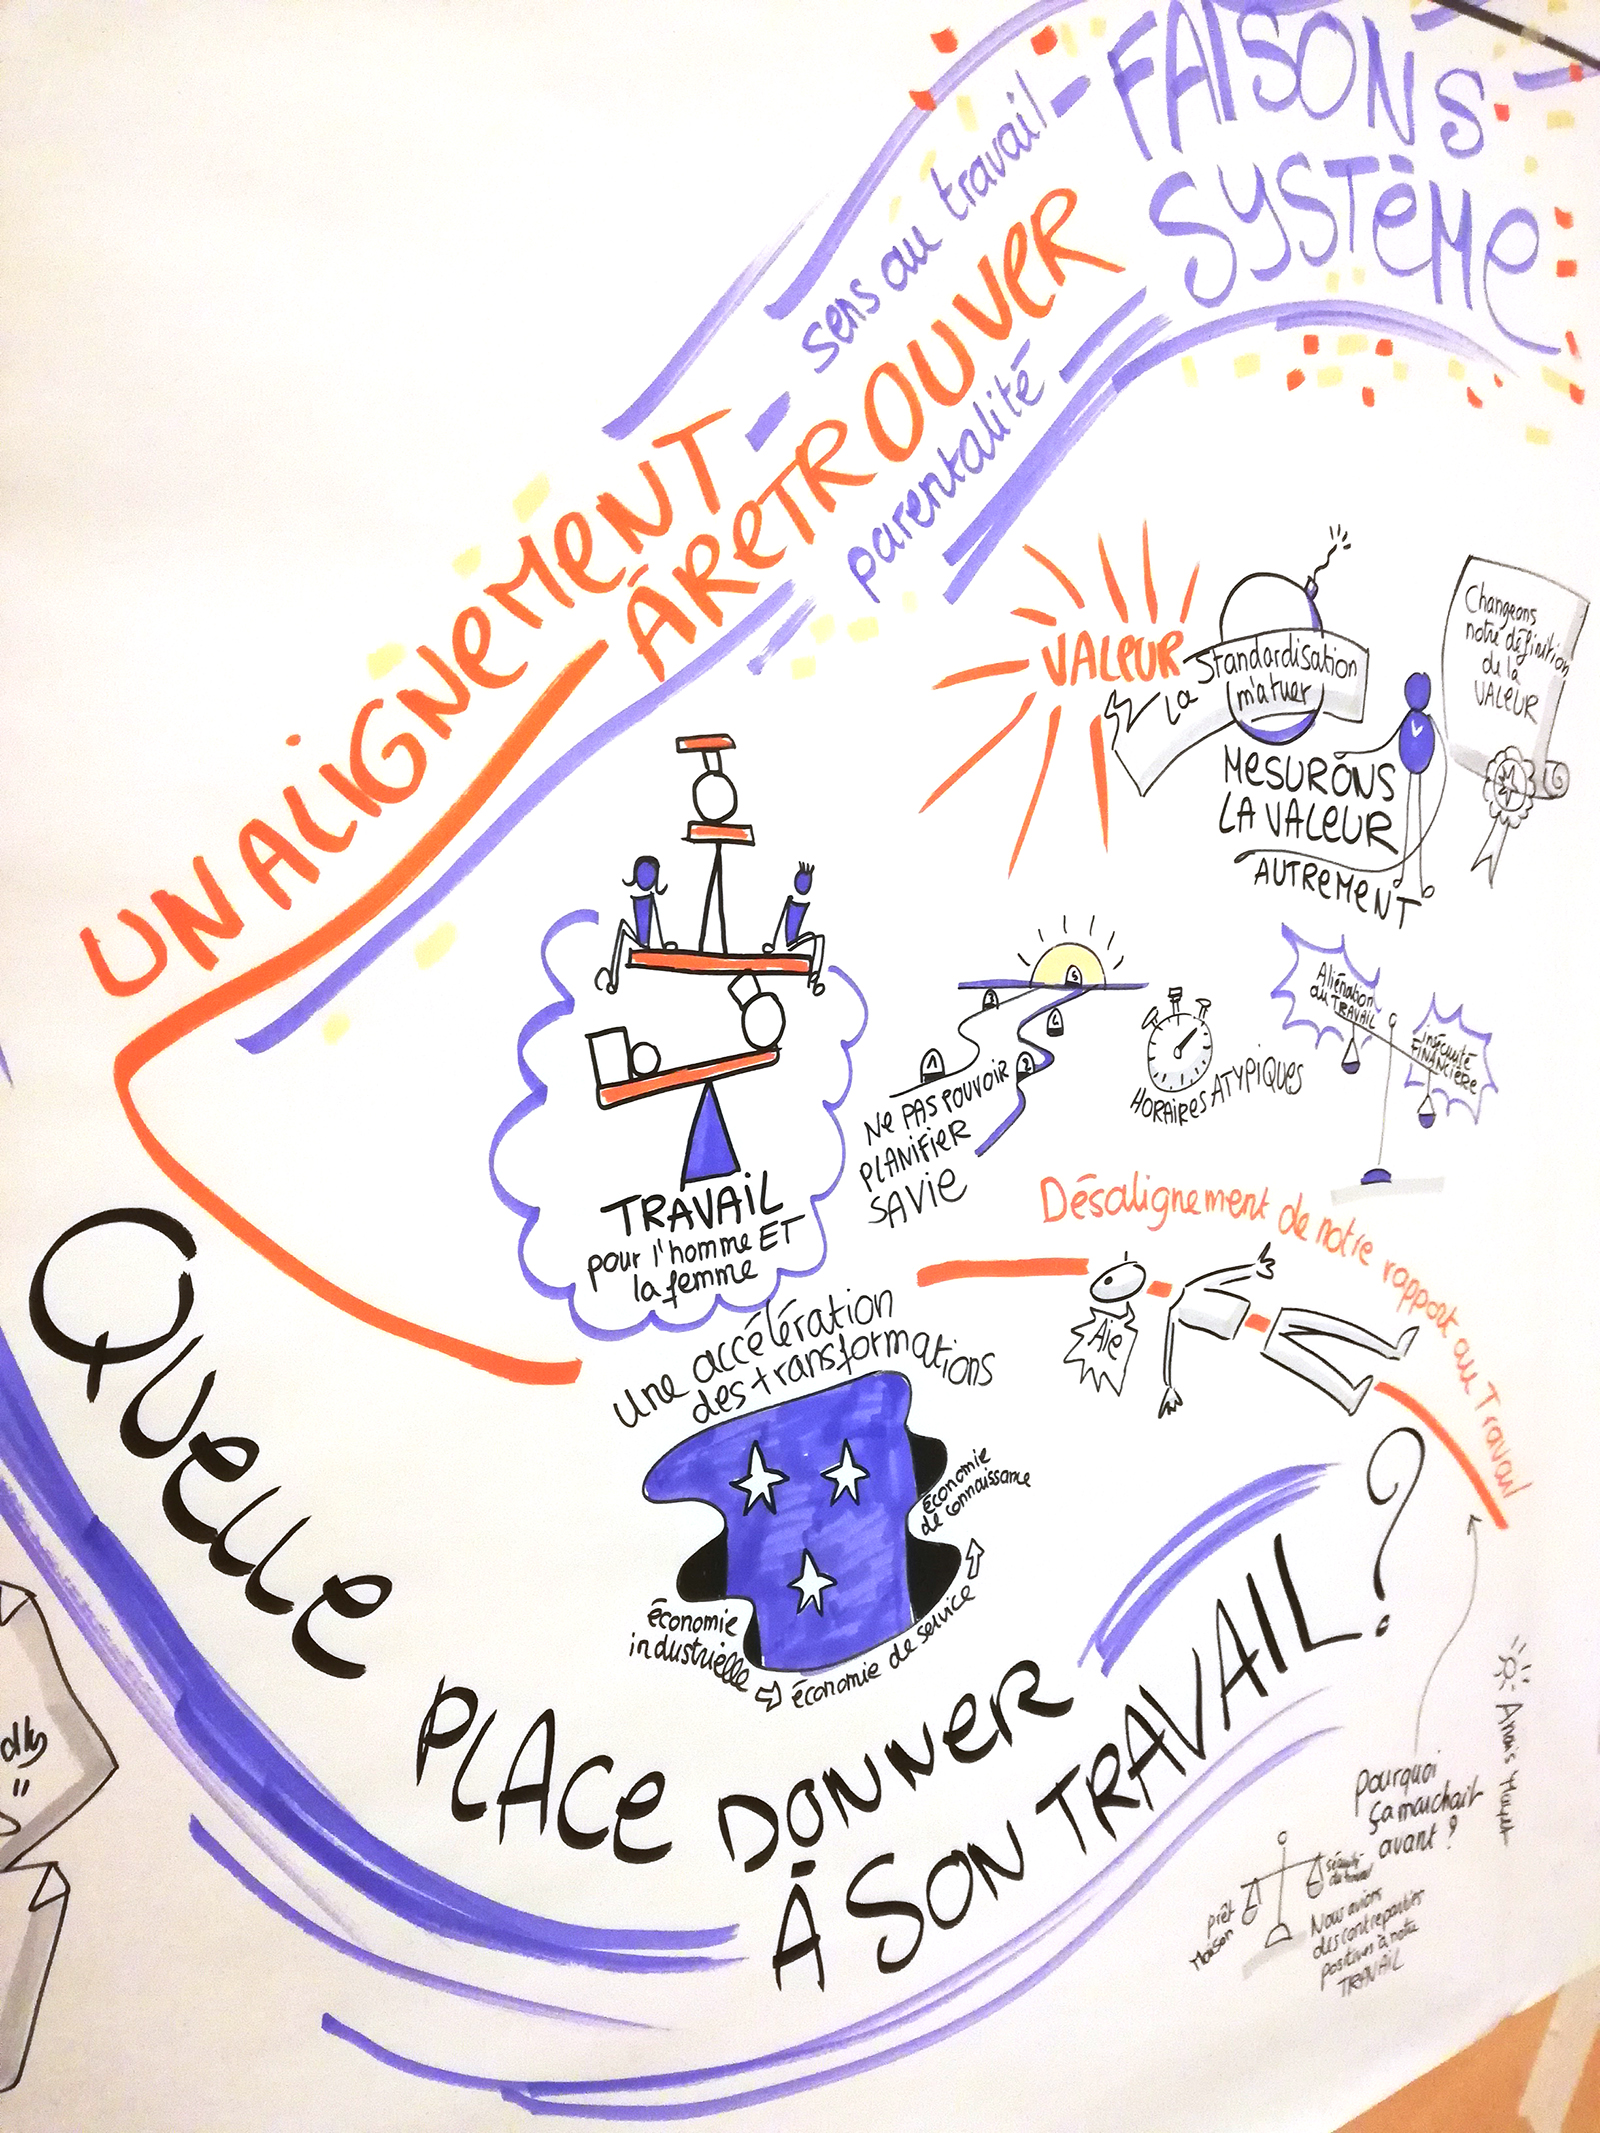 FAISONS
SYSTÈME
sens au travail
UN ALIGNEMENT
À RETROUVER
parentalité
VALEUR
La Standardisation
m'a tuer
MESURONS
LA VALEUR
AUTREMENT
Changeons
notre définition
de la
VALEUR
TRAVAIL
pour l'homme ET
la femme
1
2
3
4
5
NE PAS POUVOIR
PLANIFIER
SA VIE
HORAIRES ATYPIQUES
Aliénation
du TRAVAIL
insécurité
FINANCIÈRE
Désalignement de notre rapport au Travail
Aïe
une accélération
des transformations
économie
industrielle
économie de service
économie
de connaissance
QUELLE
PLACE DONNER
À SON TRAVAIL ?
pourquoi
ça marchait
avant ?
prêt
maison
sécurité
du travail
Nous avions
des contreparties
positives à notre
TRAVAIL
Anaïs